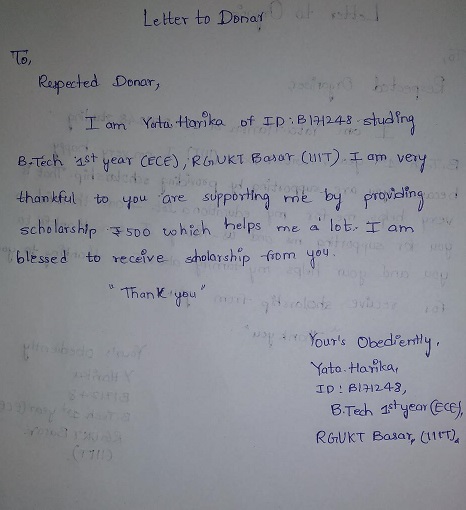 Letter to Donar
To,
Respected Donar,
I am Yata.Harika of ID:B171248 studing
B.Tech 1st year (ECE), RGUKT Basar (IIIT). I am very
thankful to you are supporting me by providing
scholarship ₹500 which helps me a lot. I am
blessed to receive scholarship from you.
"Thank you"
Your's Obediently,
Yata.Harika,
ID: B171248,
B.Tech 1st year (ECE),
RGUKT Basar, (IIIT).